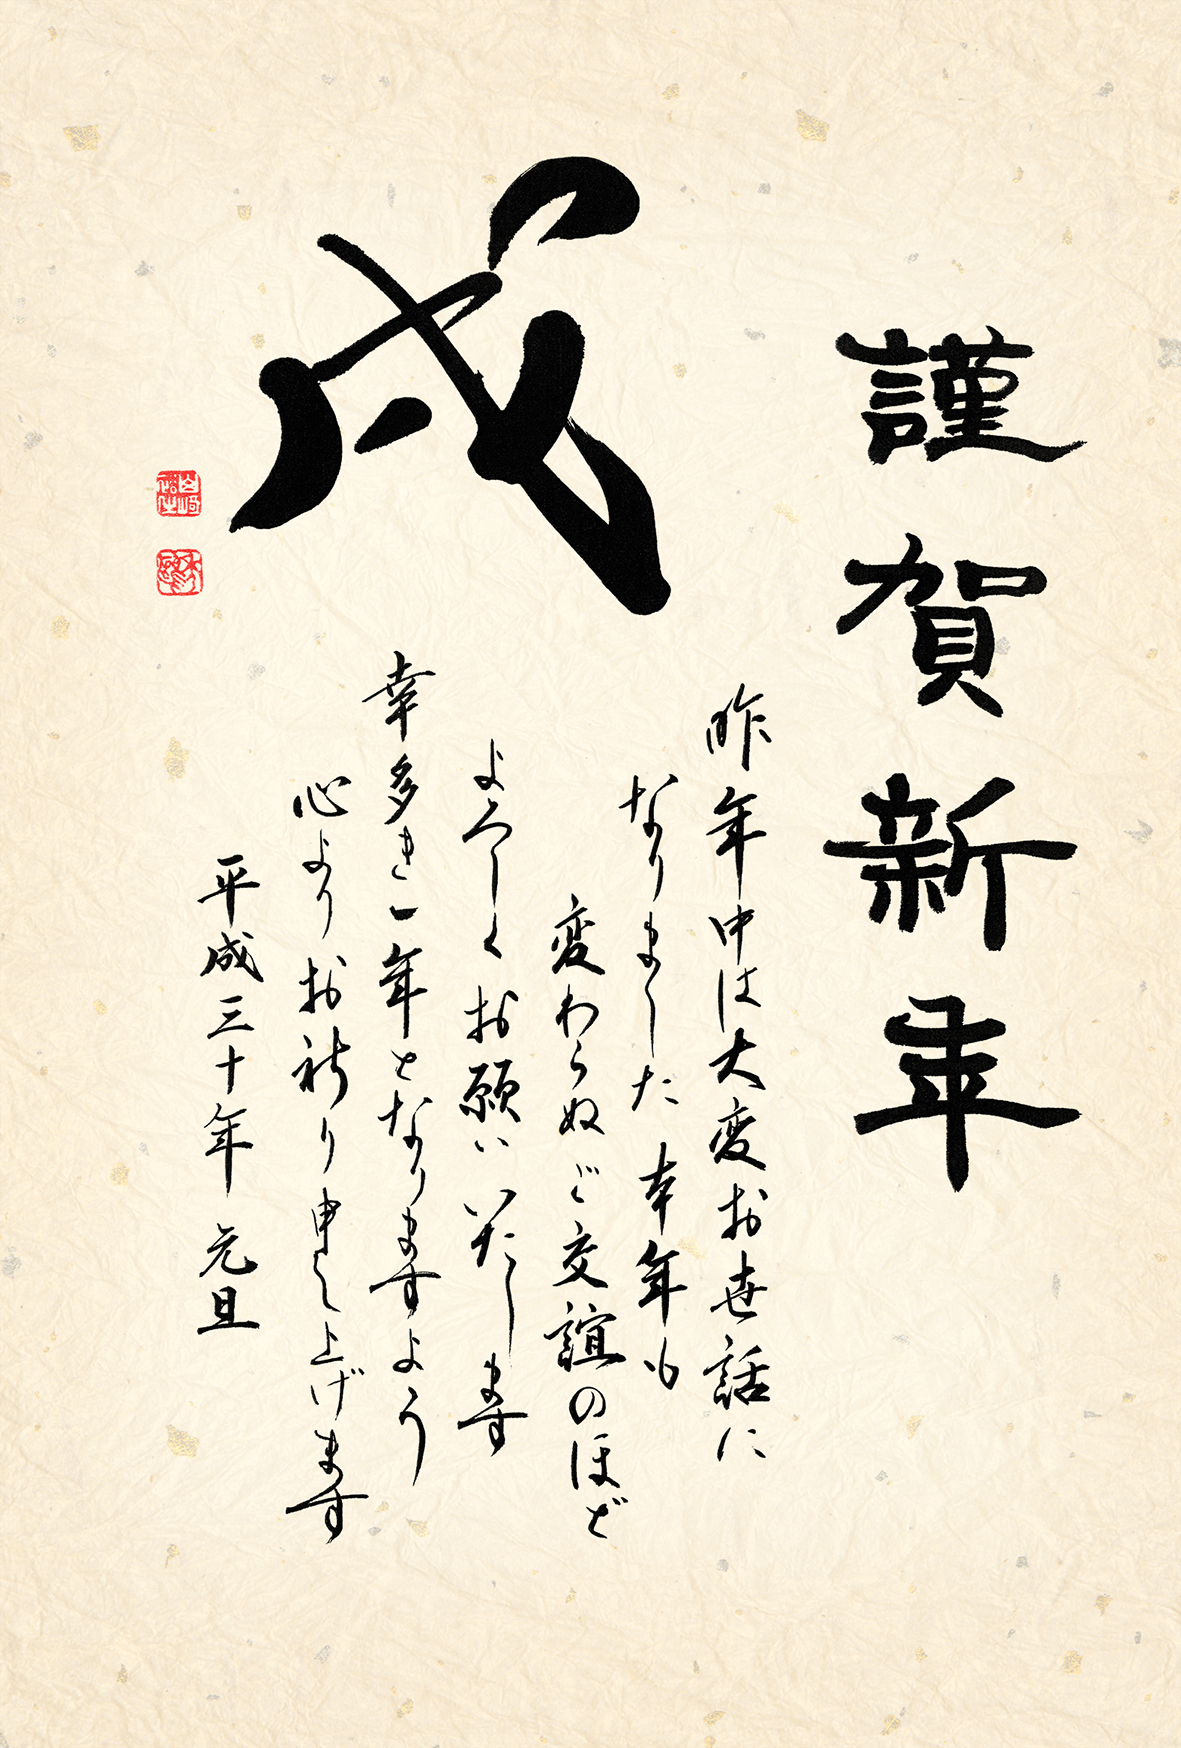 謹賀新年
戌
昨年中は大変お世話に
なりました 本年も
変わらぬご交誼のほど
よろしくお願いいたします
幸多き一年となりますよう
心よりお祈り申し上げます
平成三十年 元旦